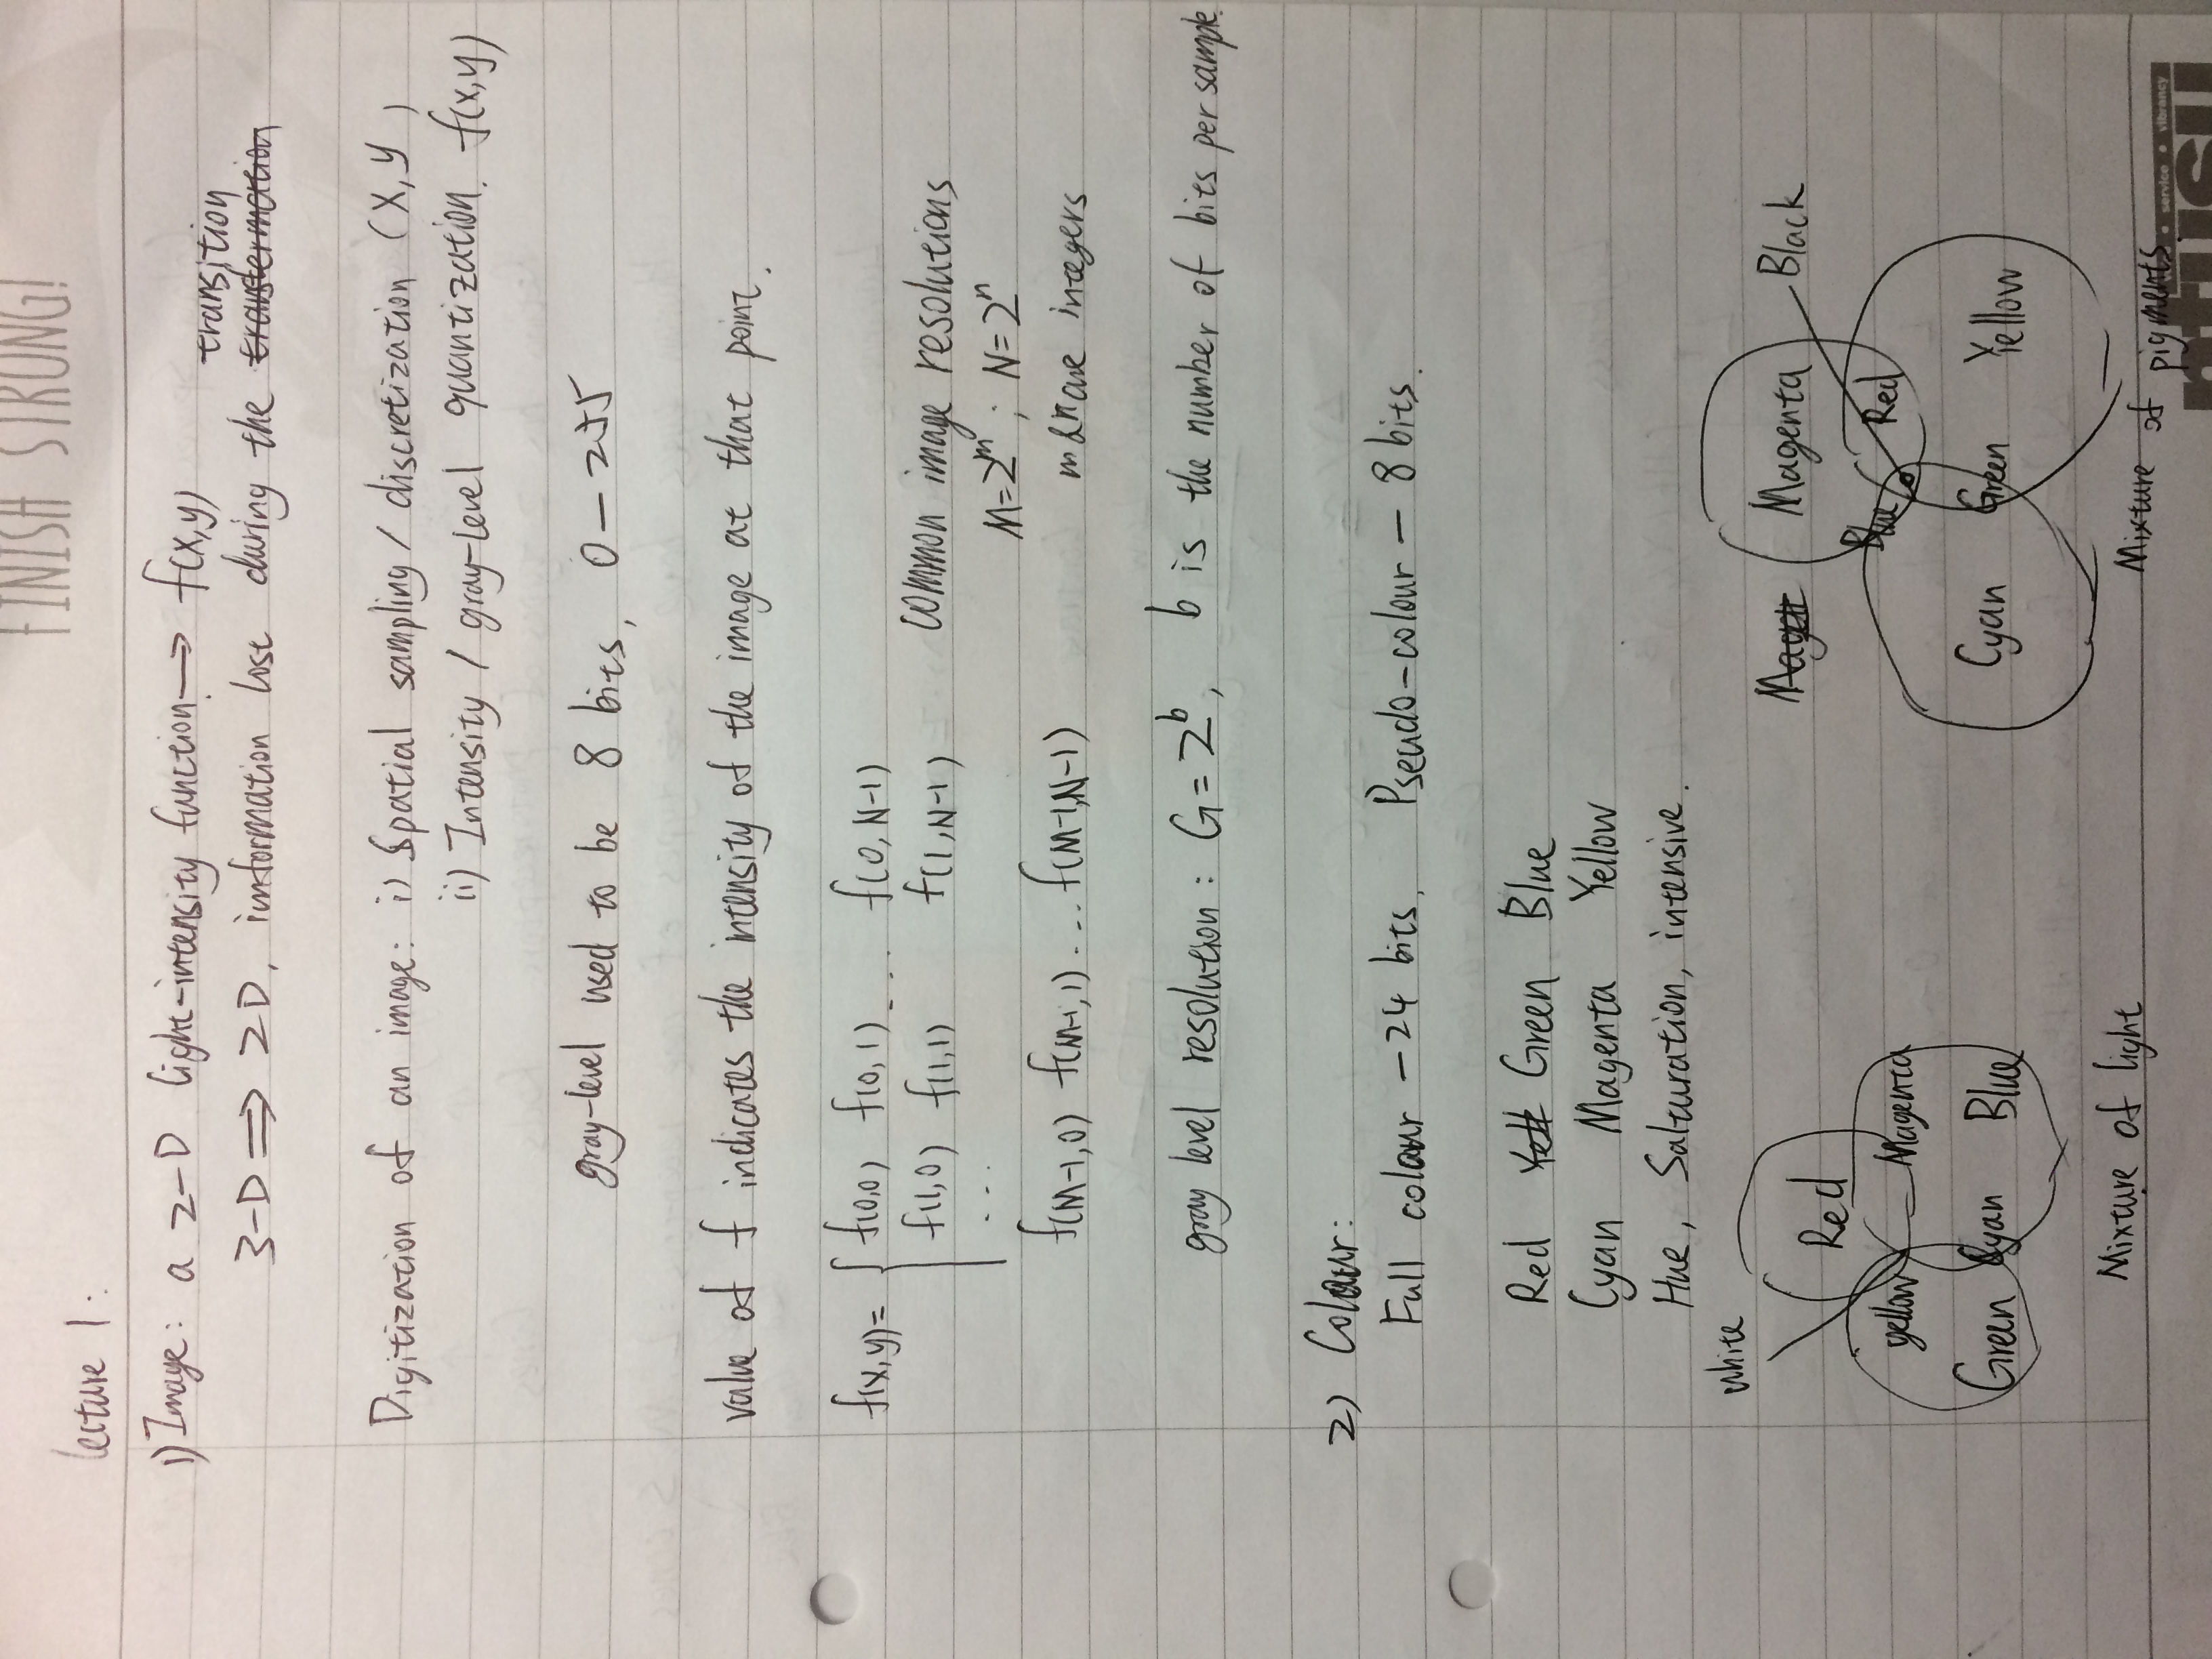 FINISH STRONG!
lecture 1:
1) Image: a 2-D light-intensity function → f(x,y)
transition
3-D ⇒ 2D, information lost during the
Digitization of an image: i) Spatial sampling / discretization (x,y)
ii) Intensity / gray-level quantization. f(x,y)
gray-level used to be 8 bits, 0 — 255
value of f indicates the intensity of the image at that point.
f(x,y)= f(0,0) f(0,1) ... f(0,N-1)
f(1,0) f(1,1) f(1,N-1) common image resolutions
... M=2^m ; N=2^n
f(M-1,0) f(M-1,1) ... f(M-1,N-1) m & n are integers
gray level resolution: G=2^b, b is the number of bits per sample.
2) Colour:
Full colour — 24 bits, Pseudo-colour — 8 bits.
Red Green Blue
Cyan Magenta Yellow
Hue, Salturation, intensive.
white
Red
yellow Magenta
Green Cyan Blue
Mixture of light
Magenta Black
Blue Red
Cyan Green Yellow
Mixture of pigments
service • vibrancy